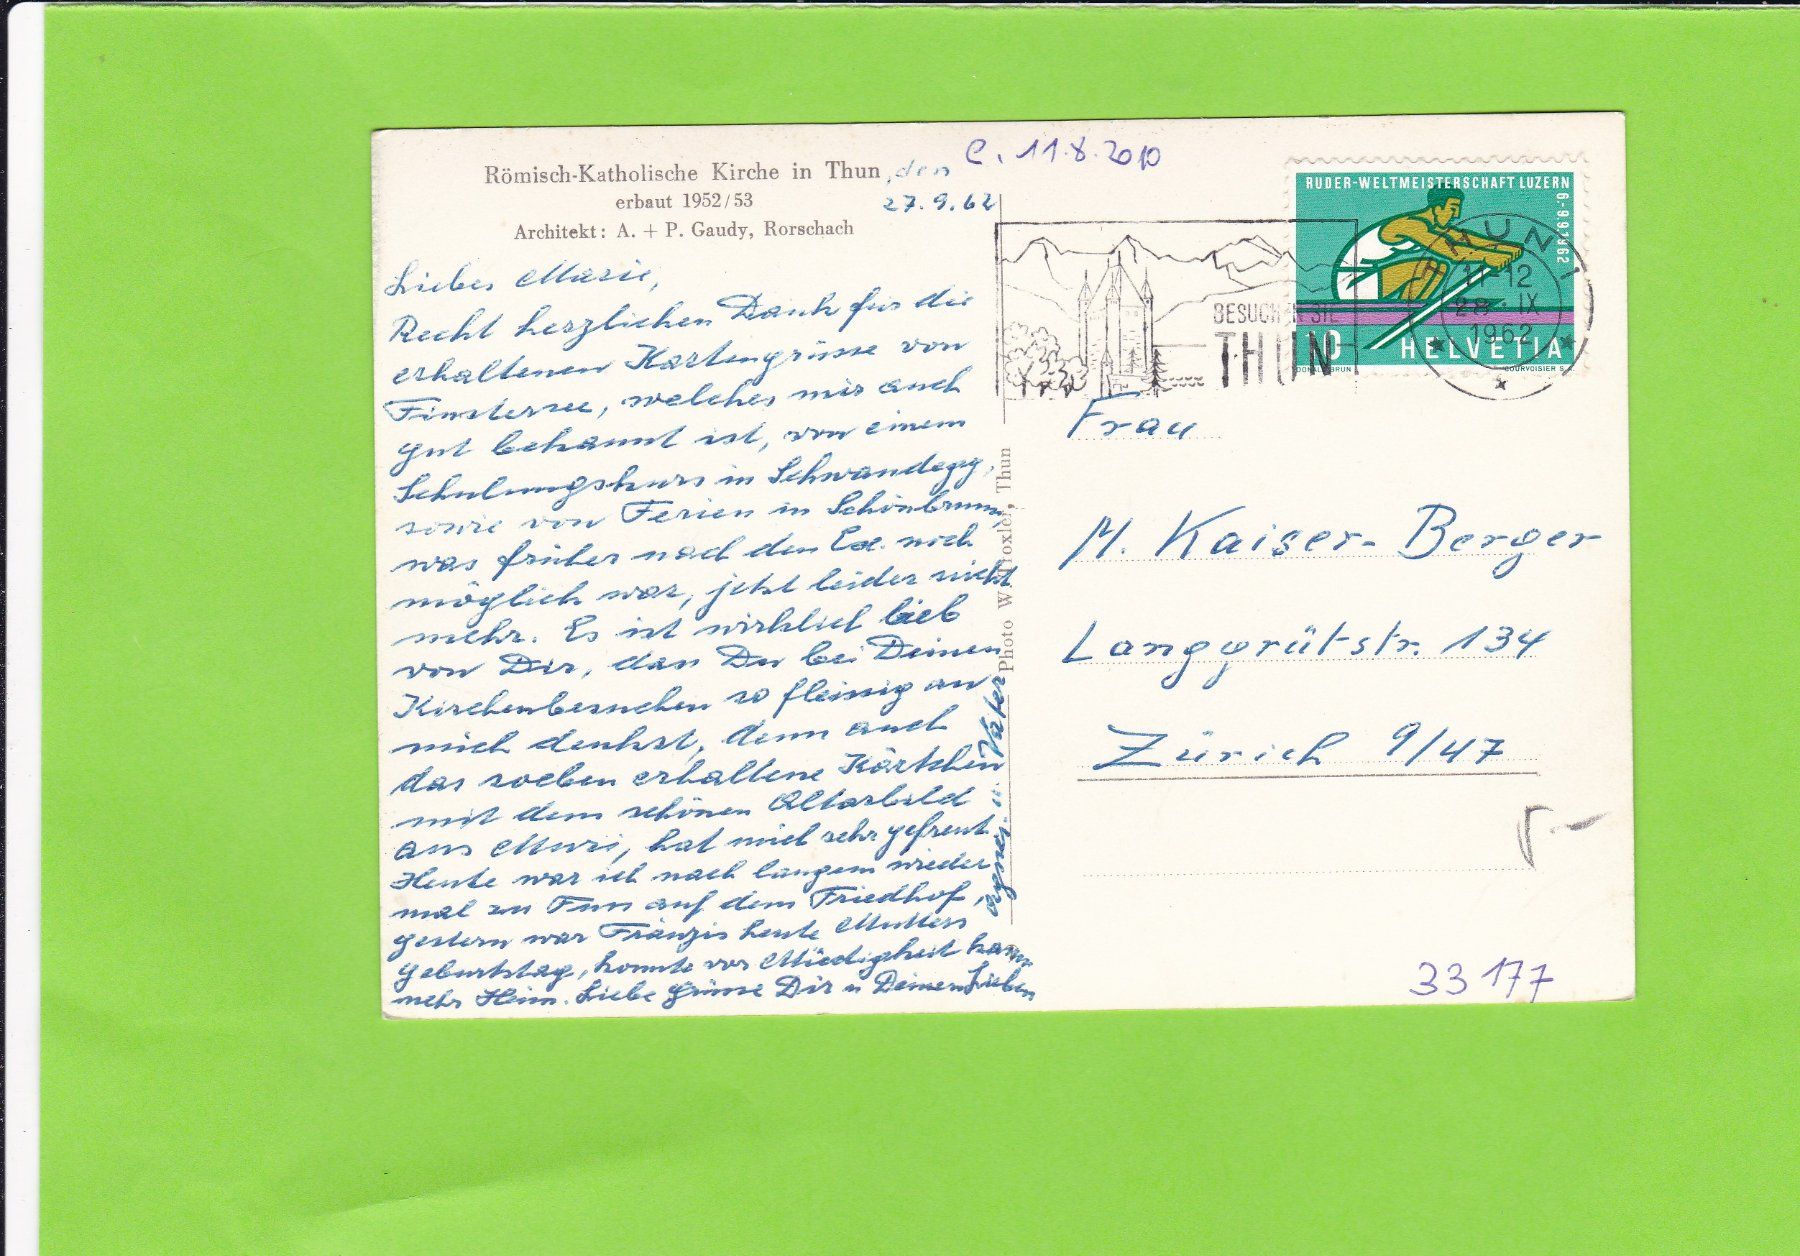 Römisch-Katholische Kirche in Thun, den
erbaut 1952/53
27.9.62
Architekt: A. + P. Gaudy, Rorschach
Liebes Marie,
Recht herzlichen Dank für die
erhaltenen Kartengrüsse von
Finstersee, welches mir auch
gut bekannt ist, von einem
Schulungskurs in Schwandegg,
sowie von Ferien in Schönbrunn,
was früher nach den Ex. noch
möglich war, jetzt leider nicht
mehr. Es ist wirklich lieb
von Dir, dass Du bei Deinen
Kirchenbesuchen so fleissig an
mich denkst, denn auch
das soeben erhaltene Kärtchen
mit dem schönen Altarbild
aus Muri, hat mich sehr gefreut.
Heute war ich nach langem wieder
mal zu Fuss auf dem Friedhof,
gestern war Fränzis heute Mutters
Geburtstag, konnte vor Müdigkeit kaum
mehr Heim. Liebe Grüsse Dir u Deinen Lieben
Agnes u. Vater
Photo W. Troxler, Thun
C. 11.8.2010
BESUCHEN SIE
THUN
RUDER-WELTMEISTERSCHAFT LUZERN
6.-9.9.1962
10 HELVETIA
DONALD BRUN
COURVOISIER S.A.
THUN 1
11-12
28. IX
1962
Frau
M. Kaiser-Berger
Langgrütstr. 134
Zürich 9/47
33177